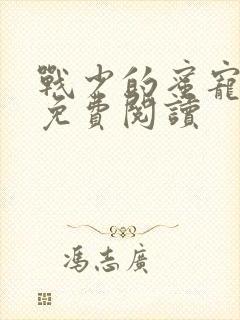 戰少的蜜寵
免費閱讀
馮志廣